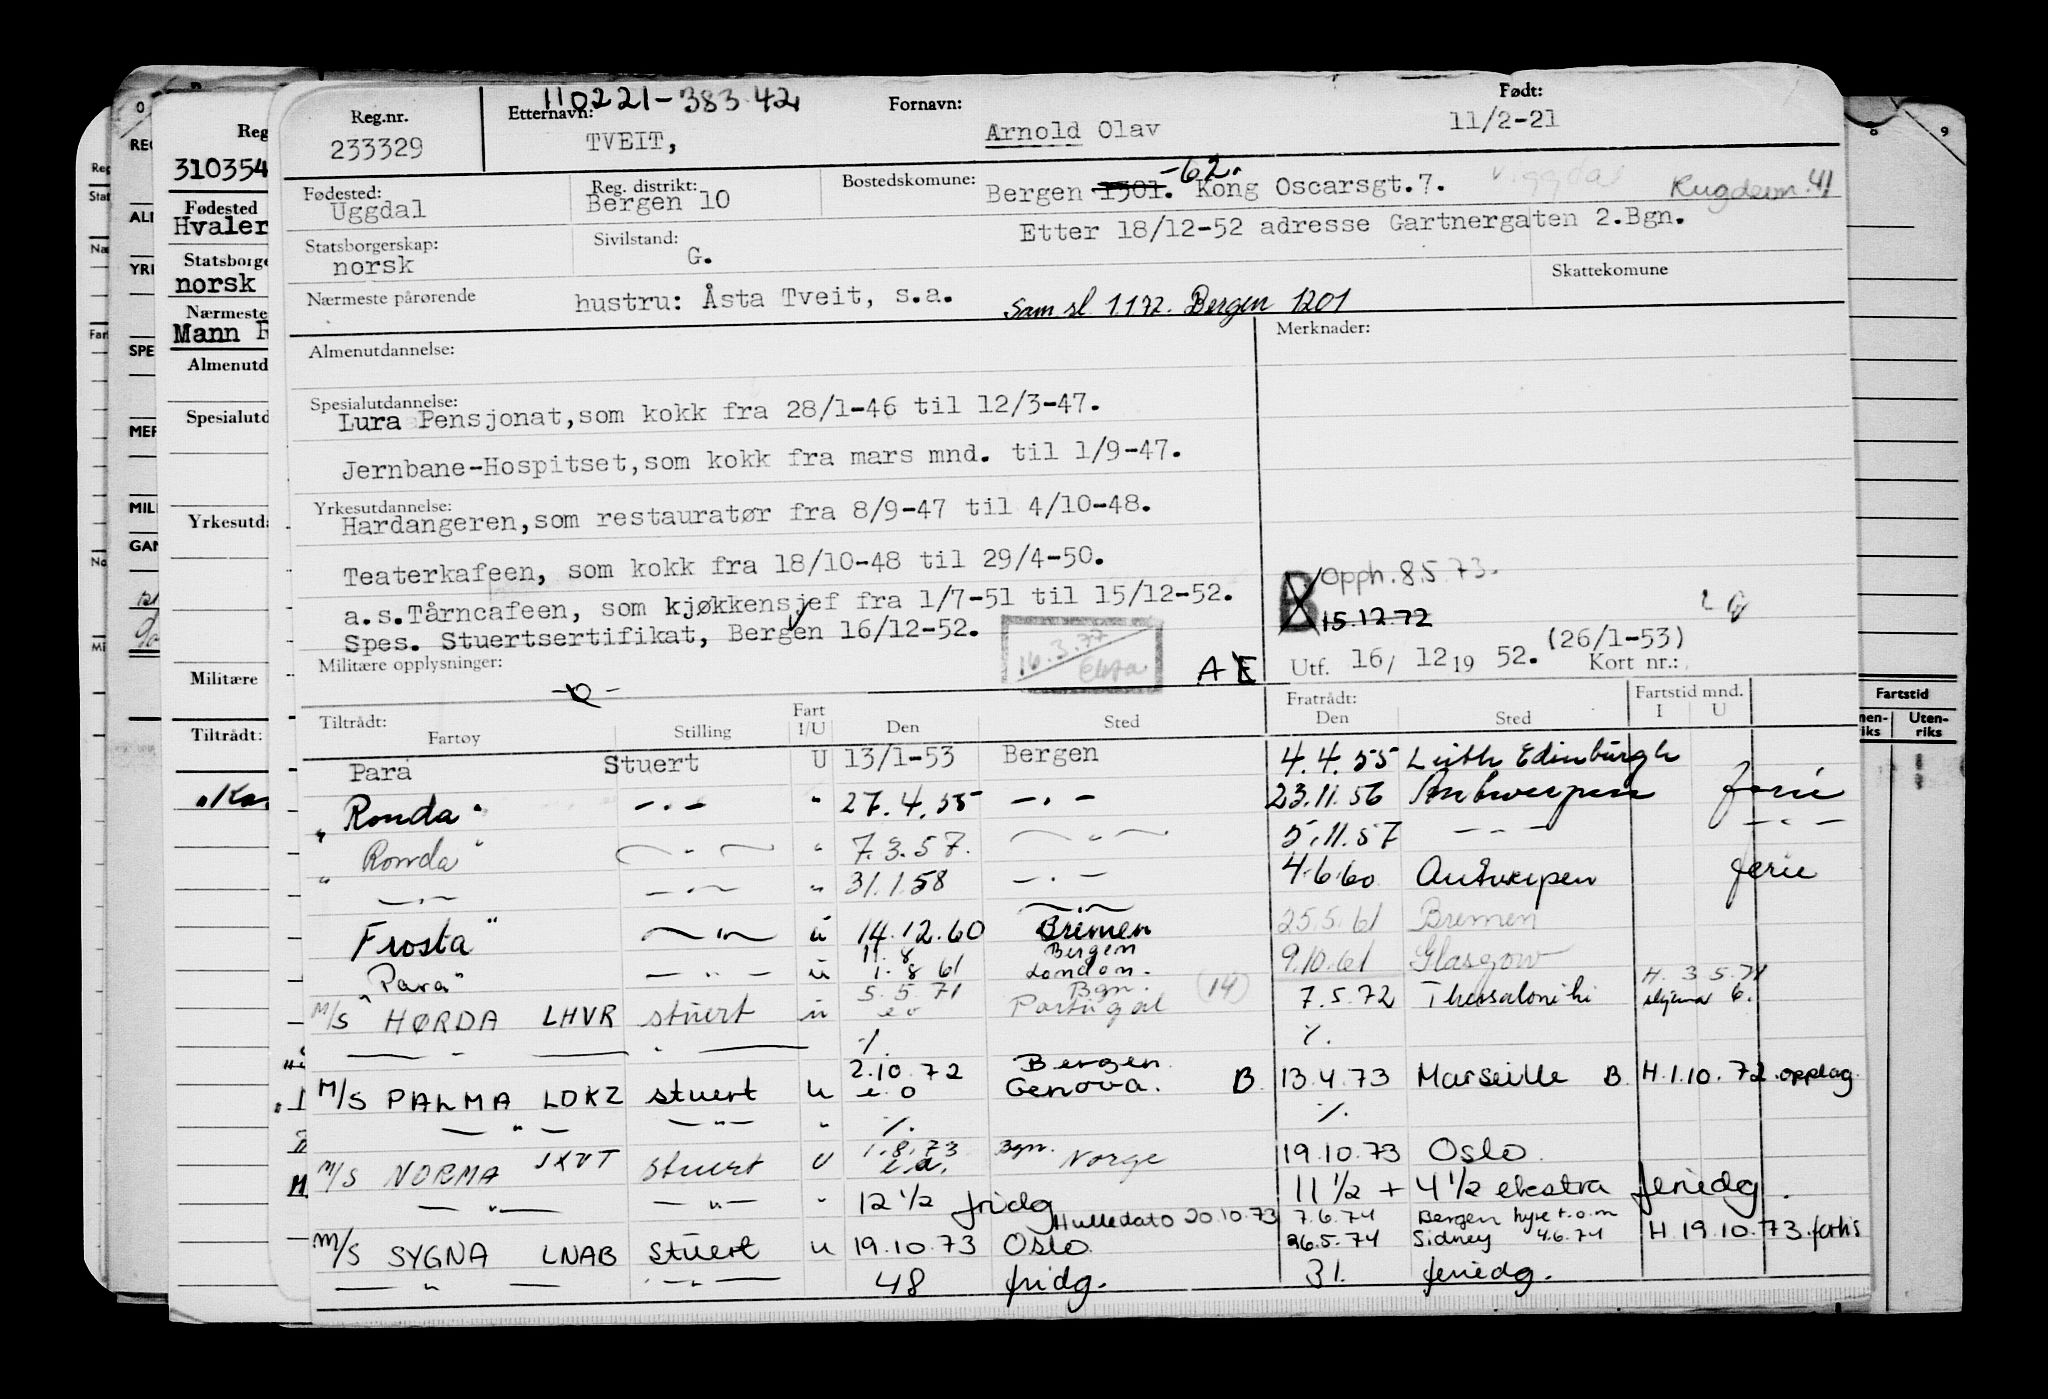 110221-383.42
Reg.nr. Etternavn: Fornavn: Født:
233329 TVEIT, Arnold Olav 11/2-21
Fødested: Reg. distrikt: Bostedskomune:
Uggdal Bergen 10 Bergen 1301. -62. Kong Oscarsgt.7. Uggdal
Statsborgerskap: Sivilstand: Etter 18/12-52 adresse Gartnergaten 2.Bgn.
norsk G. Skattekomune
Nærmeste pårørende hustru: Åsta Tveit, s.a. Sam sl. 1.1.72. Bergen 1201
Almenutdannelse: Merknader:
Spesialutdannelse:
Lura Pensjonat,som kokk fra 28/1-46 til 12/3-47.
Jernbane-Hospitset,som kokk fra mars mnd. til 1/9-47.
Yrkesutdannelse:
Hardangeren,som restauratør fra 8/9-47 til 4/10-48.
Teaterkafeen, som kokk fra 18/10-48 til 29/4-50.
Opph. 8.5.73.
a.s.Tårncafeen, som kjøkkensjef fra 1/7-51 til 15/12-52. B 15.12.72
Spes. Stuertsertifikat, Bergen 16/12-52. (26/1-53)
Militære opplysninger: 16.3.77 A E Utf. 16/ 12 19 52. Kort nr.:
Tiltrådt: Fart Fratrådt: Fartstid mnd.
Fartøy Stilling I/U Den Sted Den Sted I U
Para Stuert U 13/1-53 Bergen 4.4.55 Leith Edinburgh
"Ronda" -"- " 27.4.55 -"- 23.11.56 Antwerpen ferie
"Ronda" -"- " 7.3.57. -"- 5.11.57 -"- -"-
-"- -"- " 31.1.58 -"- 4.6.60 Antwerpen ferie
Frosta" -"- u 14.12.60 Bremen 25.5.61 Bremen
11.8 Bergen
"Para" -"- u 1.8.61 London. 9.10.61 Glasgow
5.5.71 Bgn. (14) H. 3.5.71
M/S HØRDA LHVR stuert u e.o Portugal 7.5.72 Thessaloniki 6.
-"- -"- %. %.
2.10.72 Bergen
M/S PALMA LDKZ stuert u e.o Genova. B 13.4.73 Marseille B H.1.10.72. opplag
-"- -"- " %. %.
1.8.73 Bgn.
M/S NORMA JXVT stuert U e.d. Norge 19.10.73 Oslo.
-"- -"- " 12 1/2 fridg 11 1/2 + 4 1/2 ekstra feriedg.
Hulledato 20.10.73 7.6.74 Bergen hyre t.o.m 4.6.74
M/S SYGNA LNAB stuert u 19.10.73 Oslo. 26.5.74 Sidney H 19.10.73. forts
-"- -"- 48 fridg. 31. feriedg.
Reg
310354
Fødested
Hvaler
Statsborge
norsk
Nærmeste
Mann
Almenutd
Spesialutd
Yrkesutda
Militære
Tiltrådt:
Fartstid
Uten-
riks